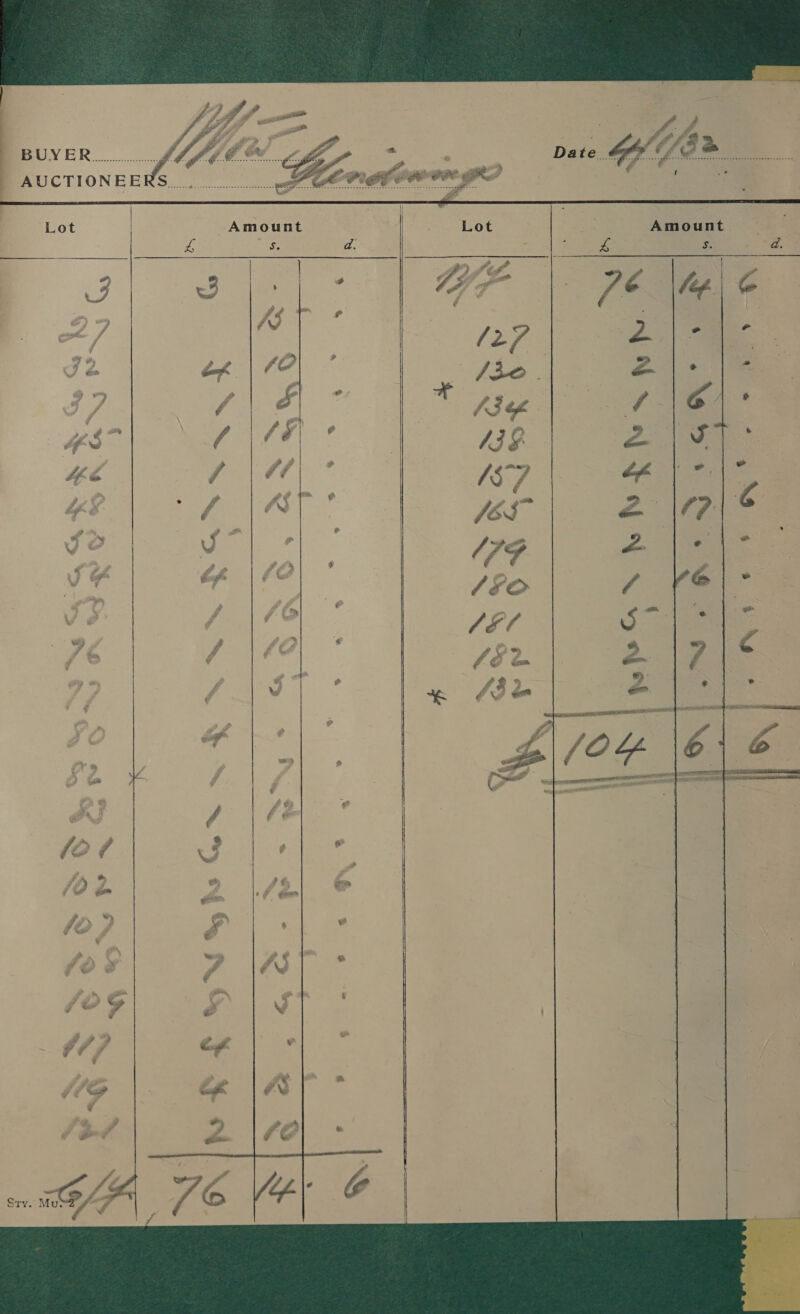 BUYER
Date
AUCTIONEERS
Lot Amount Lot Amount
£ s. d. £ s. d.
3 3 . .
27 15 .
32 4 10 .
37 1 8 .
45 1 18 .
46 1 11 .
48 1 15 .
50 5 . .
54 4 10 .
58 1 16 .
76 1 10 .
77 1 5 .
80 4 . .
82 x 1 7 .
83 1 12 .
101 3 . .
102 2 12 6
107 8 . .
108 7 15 .
109 8 5 .
117 4 . .
119 4 15 .
121 2 10 .
C/F 76 14 6
B/F 76 14 6
127 2 . .
130 2 . .
* 134 1 6 .
138 2 5 .
157 4 . .
165 2 17 6
179 2 . .
180 1 16 .
181 5 . .
182 2 7 6
* 132 2 . .
£ 104 6 6